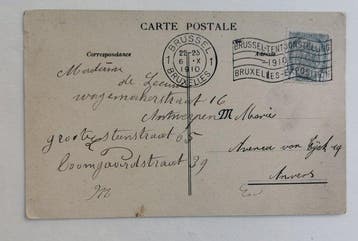 CARTE POSTALE
Correspondance
BRUSSEL
1 22-23 1
6 - X
1910
BRUXELLES
BRUSSEL-TENTOONSTELLING
1910
BRUXELLES-EXPOSITION
Madame
de Leeuw
wagemakerstraat 16
Antwerpen
grootesteenstraat 65
boomgaardstraat 39
M
M Marie
Avenue van Eyck 49
Anvers